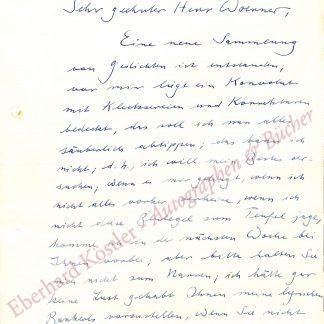 Sehr geehrter Herr Woerner,
Eine neue Sammlung
von Gedichten ist entstanden,
vor mir liegt ein Konvolut
mit Klecksereien und Korrekturen
bedeckt, das soll ich nun alles
säuberlich abtippen; das kann ich
nicht; d.h. ich will mein Bestes ver-
suchen, wenn es mir gelingt, wenn ich
nicht alles vorher wenn ich
nicht zum Teufel jage,
komme ich in der nächsten Woche bei
Ihnen vorbei, aber bitte halten Sie
mich nicht zum Narren; ich hätte gar
keine Lust gehabt Ihnen meine lyrischen
vorzustellen, wenn Sie nicht
Eberhard Köstler Autographen der Bücher